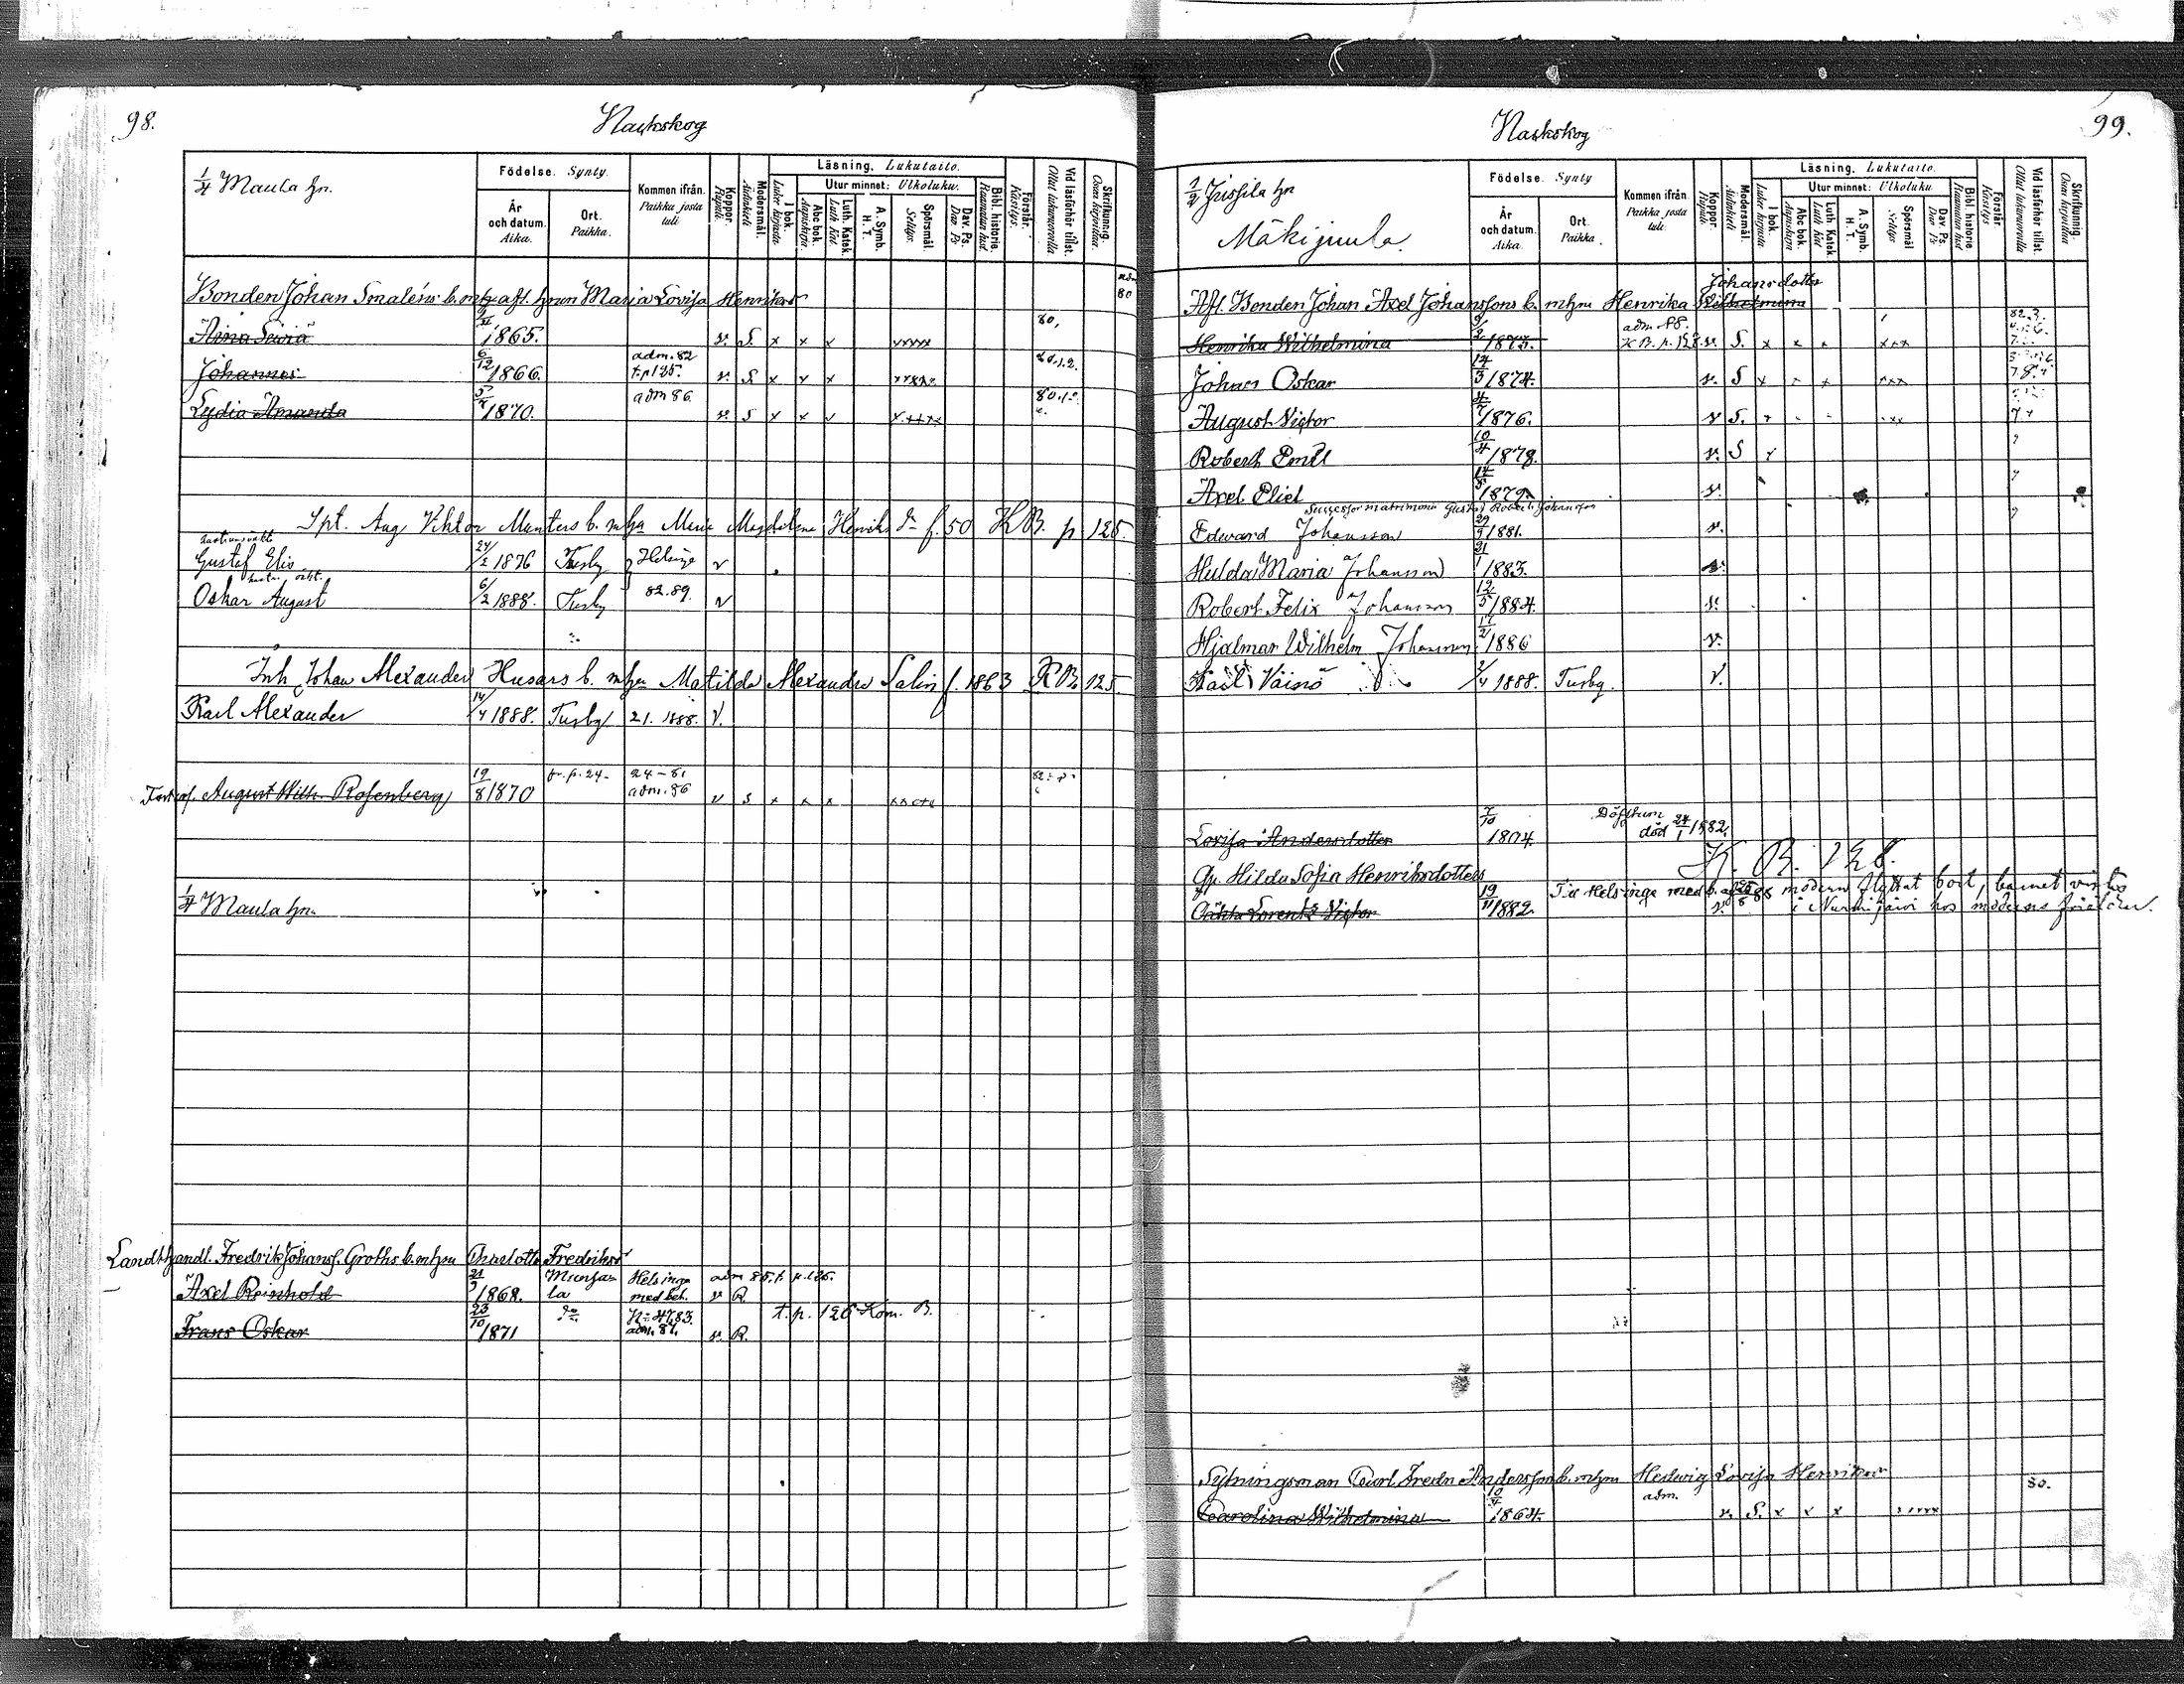 98.
Nackskog
1/4 Maula hn.
Födelse. Synty.
År och datum. Aika.
Ort. Paikka.
Kommen ifrån. Paikka josta tuli
Koppor. Rupuli.
Modersmål. Äidinkieli
Läsning. Lukutaito.
I bok. Lukee kirjasta
Utur minnet: Ulkoluku.
Abc bok. Aapiskirja.
Luth. Katek. Luth. Kat.
A. Symb. H. T.
Spörsmål. Selitys.
Dav. Ps. Dav. Ps
Bibl. historie. Raamatun hist.
Förstår. Käsitys.
Vid läsförhör tillst. Ollut lukuvuorolla
Skrifkunnig. Osaa kirjoittaa.
Bonden Johan Smaléns b. m. afl. hrun Maria Lovisa Henriksdr
80
Aina 1865. v. S. x x x xxxxx 80,
Johannes 6/12 1866. adm. 82 t. p 125. v. S x x x xxxxx 80.1.2.
Lydia Amanda 1870. adm 86. v. S x x x xxxxx 80.1.2
Spt. Aug Viktor Munters b. m hu Maria Magdalena Henriks dr f. 50 K B. p 125.
Gustaf Elis 24/2 1876 Tusby Helsinge v
Oskar August 6/2 1888. Tusby 82.89. v
Inh Johan Alexander Husars b. m hu Matilda Alexandra Salin f. 1863 K B. 125
Karl Alexander 14/4 1888. Tusby 21. 1888. V.
August Wilh. Rosenberg 19/8 1870 fr. p. 24. 24-81 adm. 86 v S x x x
1/4 Maula hn.
Landthandl. Fredrik Johanss. Groths b. m hu Charlotta Fredriksdr
Axel Reinhold 21/3 1868. Munsala Helsinge med bet. adm 85. t. p. 125. v R.
Frans Oskar 23/10 1871 do N: 47.83. adm. 87. v. R. t. p. 126 Kom. B.
99.
Nackskog
1/2 Jussila hn
Mäkijuula.
Födelse. Synty
År och datum. Aika.
Ort. Paikka.
Kommen ifrån. Paikka, josta tuli.
Koppor. Rupuli.
Modersmål. Äidinkieli
Läsning. Lukutaito.
I bok. Lukee kirjasta
Utur minnet: Ulkoluku.
Abc bok. Aapiskirja.
Luth. Katek. Luth Kat
A. Symb. H. T.
Spörsmål Selitys
Dav. Ps Dav Ps
Bibl. historie Raamatun hist
Förstår. Käsitys
Vid läsförhör tillst. Ollut lukuvuorolla
Skrifkunnig. Osaa kirjoittaa
Johansdotter
Afl. Bonden Johan Axel Johanssons b. m hru Henrika Wilhelmina
Henrika Wilhelmina 2 1873. adm. 88. K B. p. 128. v. S. x x x xxx 82.3.
Johan Oskar 14/3 1874. v. S x - x xxx
August Victor 4/7 1876. v S. x - - xxx
Robert Emil 10/4 1878. v. S x
Axel Eliel 1879. v.
Successor matrimonii Gustaf Robert Johansson
Edward Johansson 29/9 1881. v.
Hulda Maria Johansson 21/1 1883. v.
Robert Felix Johansson 12/5 1884. v.
Hjalmar Wilhelm Johansson 1886 v.
Karl Väinö 2/4 1888. Tusby. V.
Lovisa Andersdotter 7/10 1804. död 24/1 1882.
K. B. 128.
Qp. Hilda Sofia Henriksdotters
Lorentz Victor 19/11 1882. Till Helsinge med b. modern flyttat bort, barnet vistas
v. i Nurmijärvi hos moderns föräldrar.
Sytningsman Carl Fredr Anderssons b. m hru Hedwig Lovisa Henriksdr
Carolina Wilhelmina 10/4 1864. adm. v. S. x x x xxxxx 80.